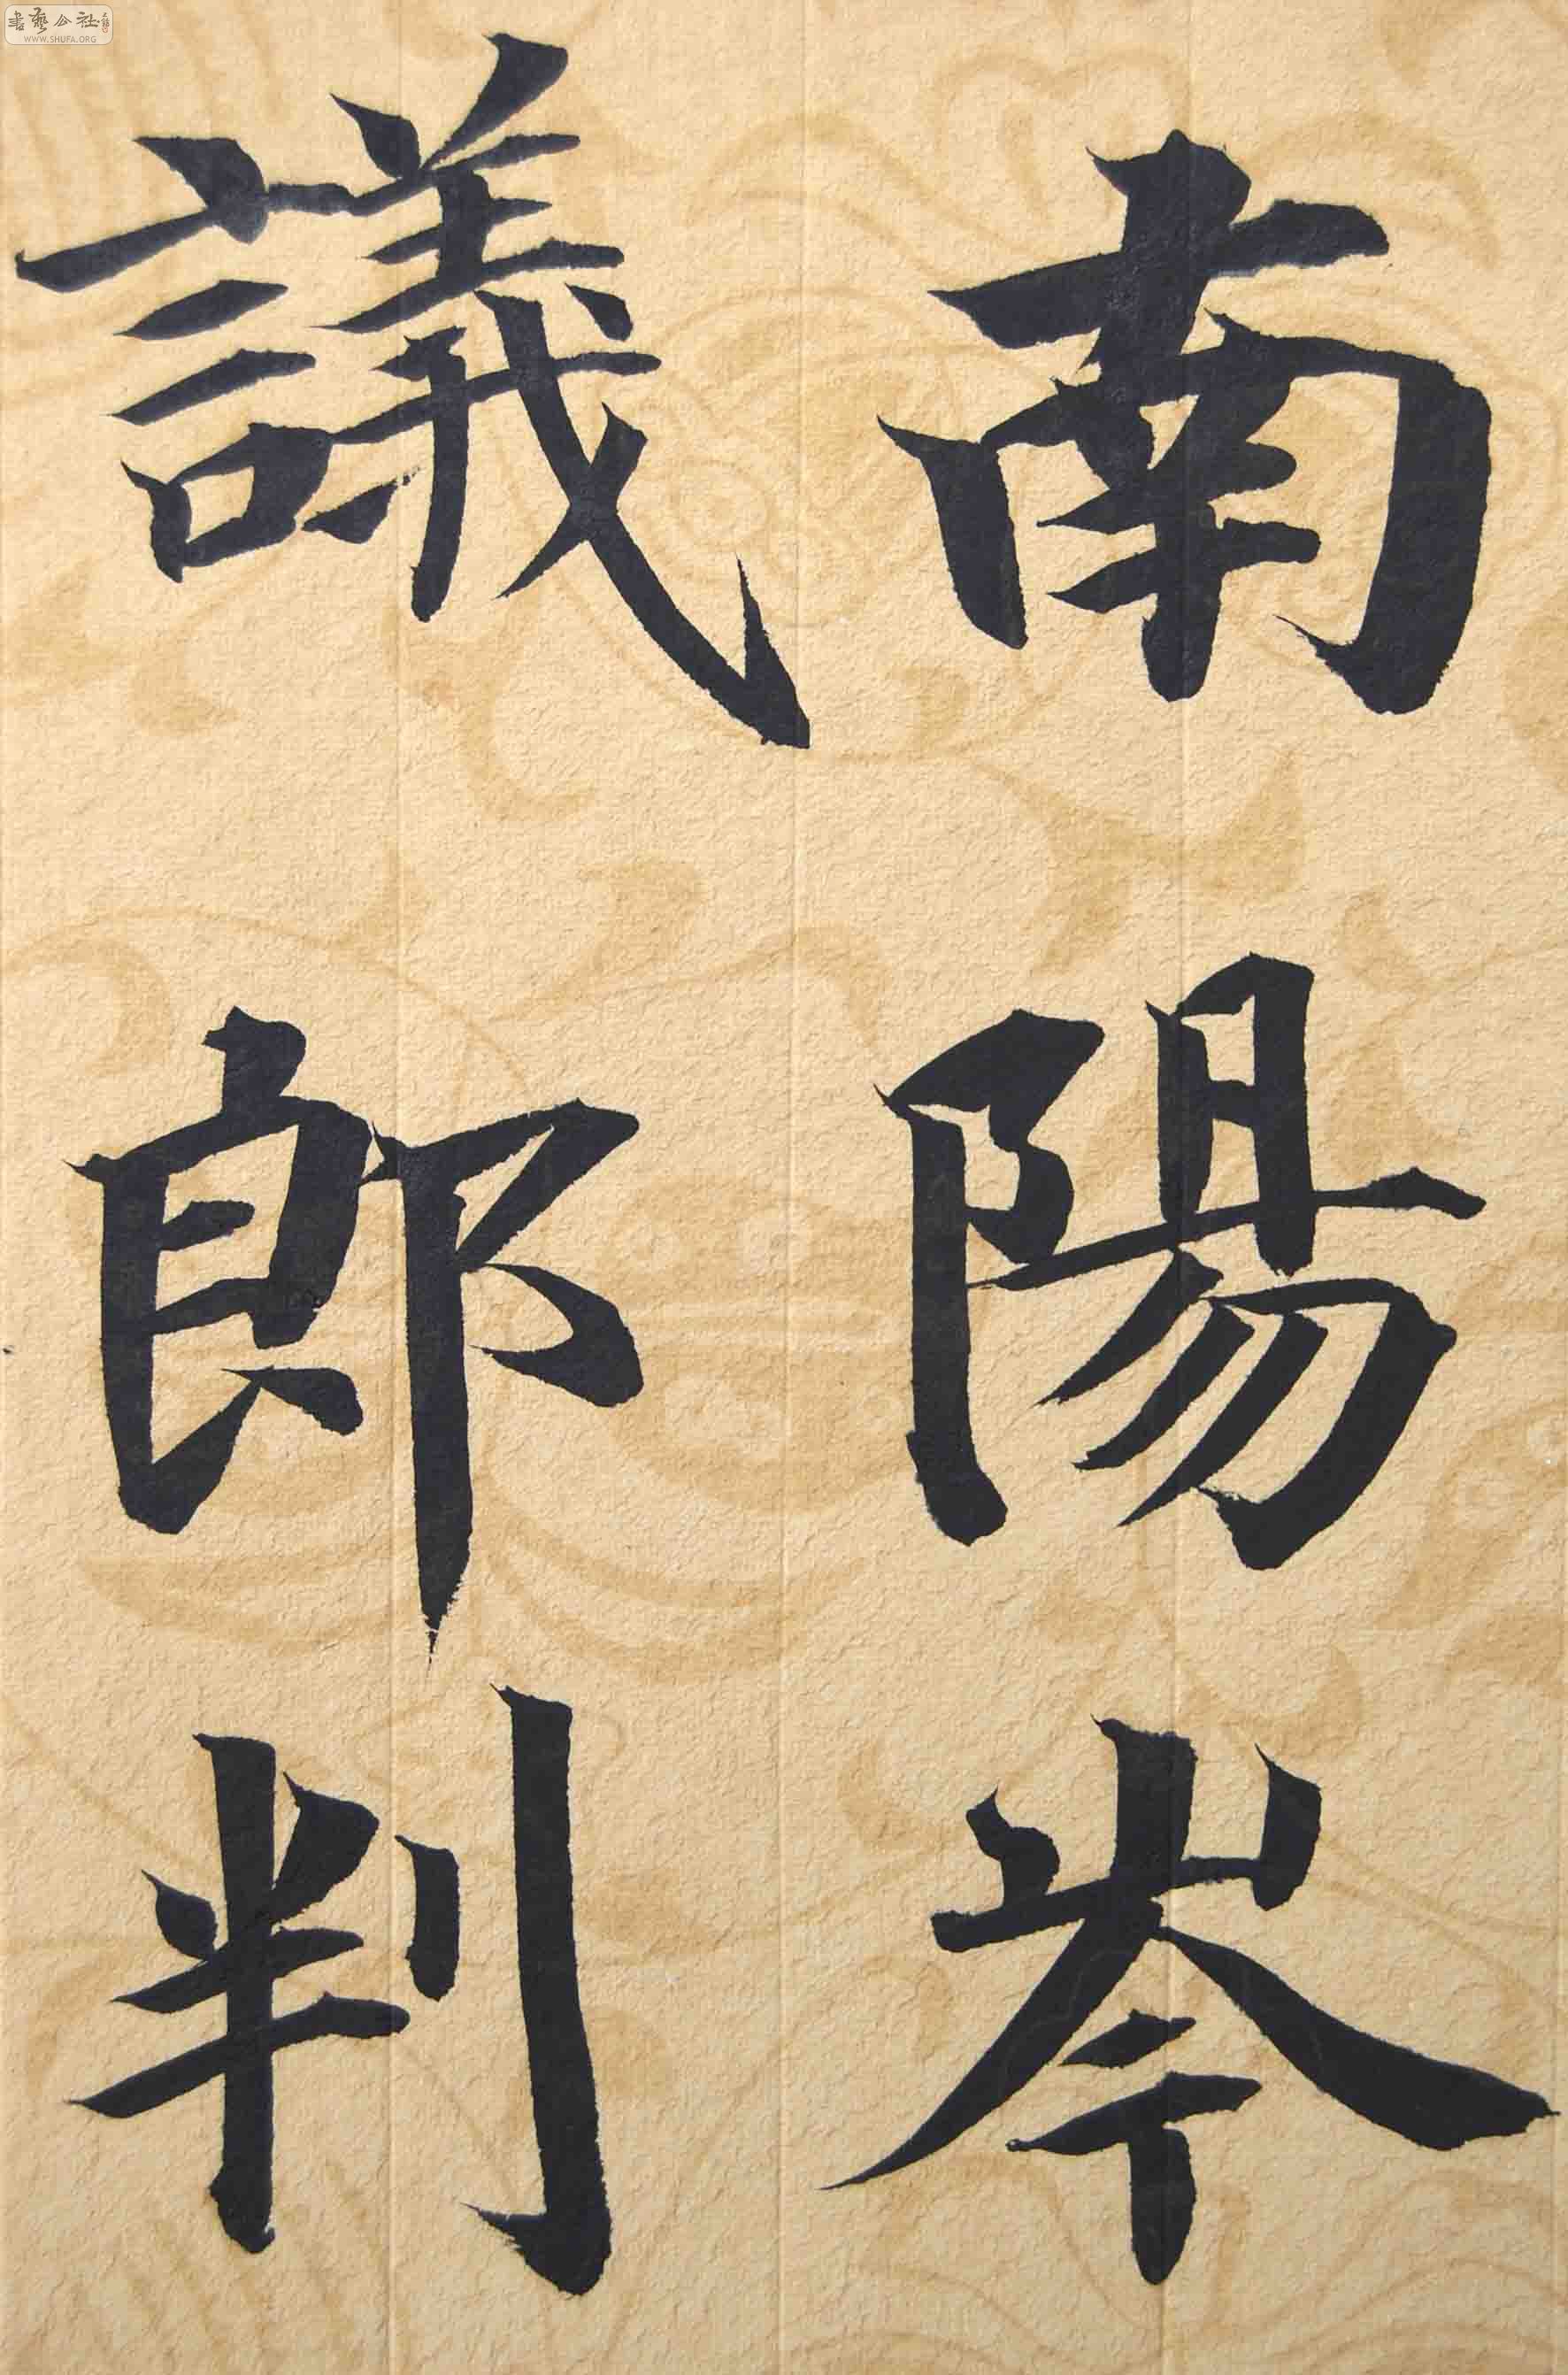 南陽岑
議郎判
書藝公社
WWW.SHUFA.ORG